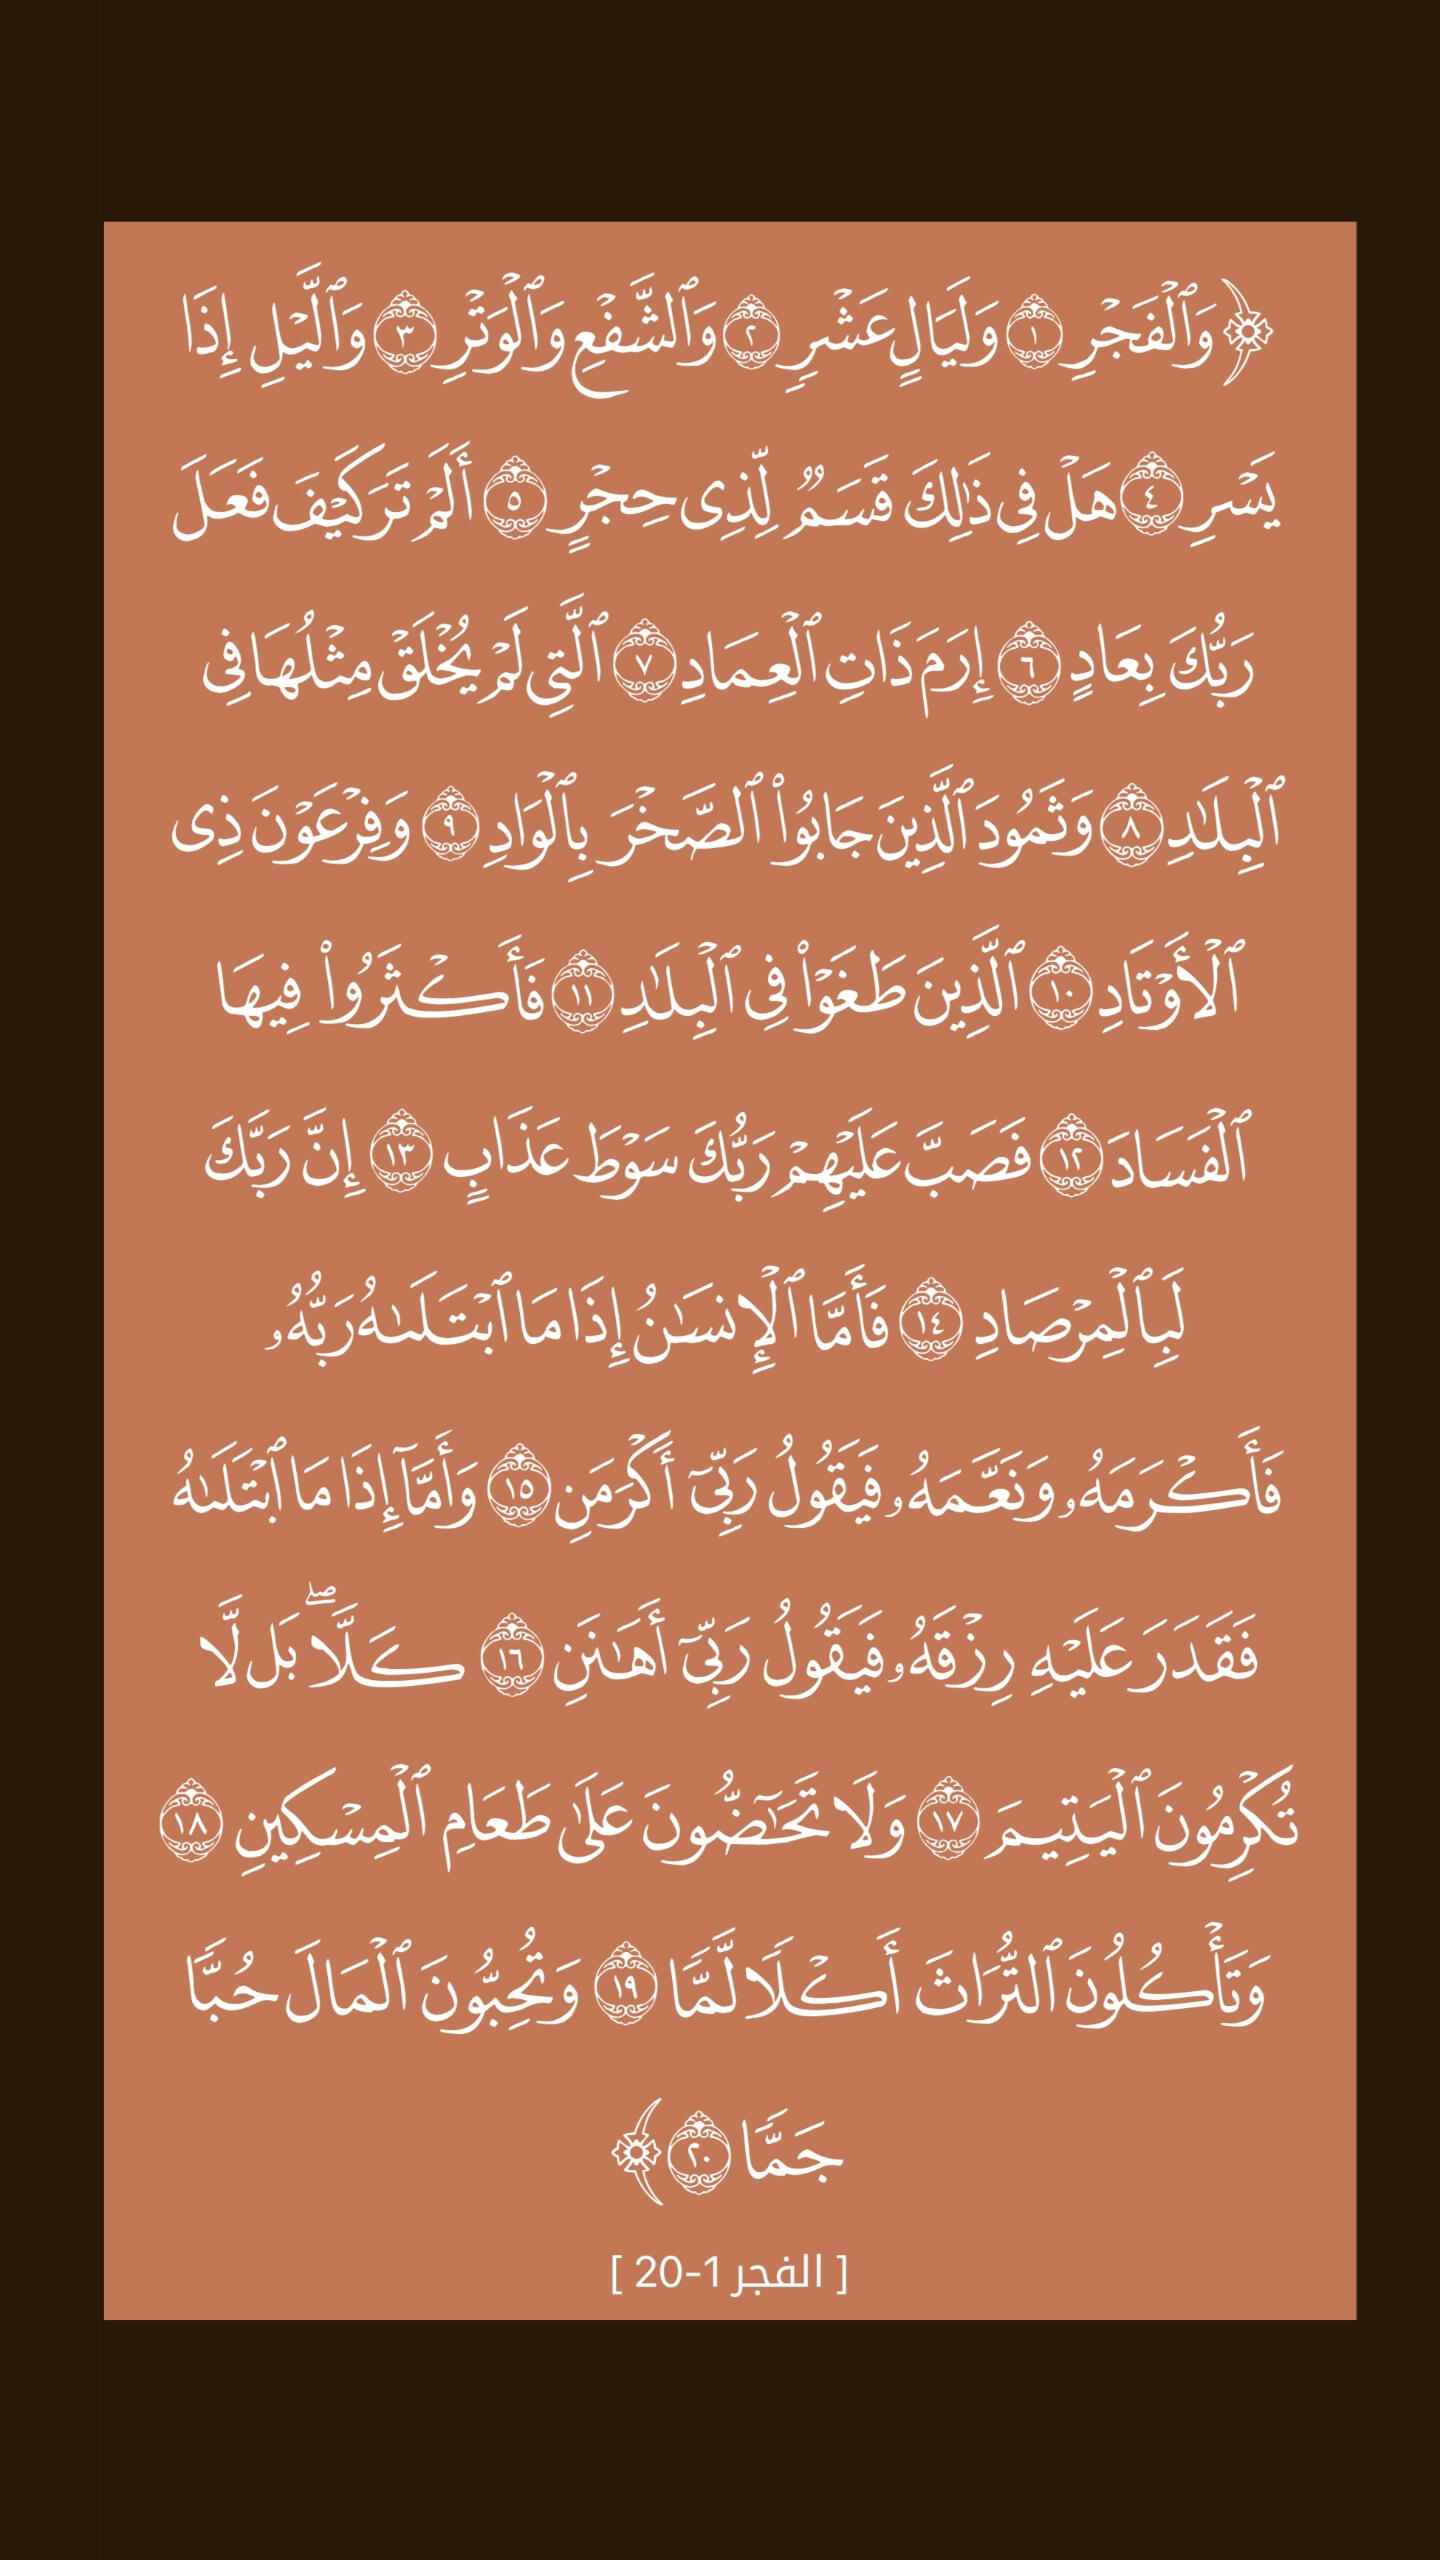 ﴿وَٱلۡفَجۡرِ ١ وَلَيَالٍ عَشۡرٖ ٢ وَٱلشَّفۡعِ وَٱلۡوَتۡرِ ٣ وَٱلَّيۡلِ إِذَا
يَسۡرِ ٤ هَلۡ فِي ذَٰلِكَ قَسَمٞ لِّذِي حِجۡرٍ ٥ أَلَمۡ تَرَ كَيۡفَ فَعَلَ
رَبُّكَ بِعَادٍ ٦ إِرَمَ ذَاتِ ٱلۡعِمَادِ ٧ ٱلَّتِي لَمۡ يُخۡلَقۡ مِثۡلُهَا فِي
ٱلۡبِلَٰدِ ٨ وَثَمُودَ ٱلَّذِينَ جَابُواْ ٱلصَّخۡرَ بِٱلۡوَادِ ٩ وَفِرۡعَوۡنَ ذِي
ٱلۡأَوۡتَادِ ١٠ ٱلَّذِينَ طَغَوۡاْ فِي ٱلۡبِلَٰدِ ١١ فَأَكۡثَرُواْ فِيهَا
ٱلۡفَسَادَ ١٢ فَصَبَّ عَلَيۡهِمۡ رَبُّكَ سَوۡطَ عَذَابٍ ١٣ إِنَّ رَبَّكَ
لَبِٱلۡمِرۡصَادِ ١٤ فَأَمَّا ٱلۡإِنسَٰنُ إِذَا مَا ٱبۡتَلَىٰهُ رَبُّهُۥ
فَأَكۡرَمَهُۥ وَنَعَّمَهُۥ فَيَقُولُ رَبِّيٓ أَكۡرَمَنِ ١٥ وَأَمَّآ إِذَا مَا ٱبۡتَلَىٰهُ
فَقَدَرَ عَلَيۡهِ رِزۡقَهُۥ فَيَقُولُ رَبِّيٓ أَهَٰنَنِ ١٦ كَلَّاۖ بَل لَّا
تُكۡرِمُونَ ٱلۡيَتِيمَ ١٧ وَلَا تَحَٰٓضُّونَ عَلَىٰ طَعَامِ ٱلۡمِسۡكِينِ ١٨
وَتَأۡكُلُونَ ٱلتُّرَاثَ أَكۡلٗا لَّمّٗا ١٩ وَتُحِبُّونَ ٱلۡمَالَ حُبّٗا
جَمّٗا ٢٠﴾
[ الفجر 1-20 ]